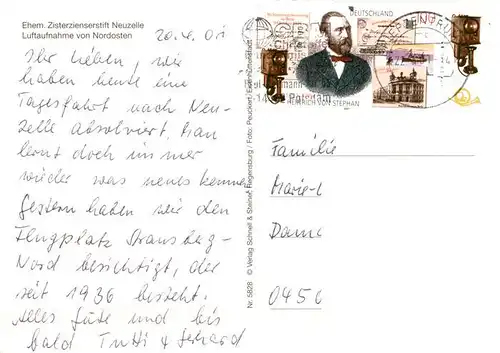 Ehem. Zisterzienserstift Neuzelle
Luftaufnahme von Nordosten
Ihr Lieben, wir
haben heute eine
Tagesfahrt nach Neu-
zelle absolviert. Man
lernt doch immer
wieder was neues kennen
Gestern haben wir den
Flugplatz Strausberg-
Nord besichtigt, der
seit 1936 besteht.
Alles Gute und bis
bald Tutti & Gerhard
Nr. 5828 © Verlag Schnell & Steiner, Regensburg / Foto: Peuckert, Eisenhüttenstadt
DEUTSCHLAND
HEINRICH VON STEPHAN
Potsdam
Familie
Marie-L
Dame
0456